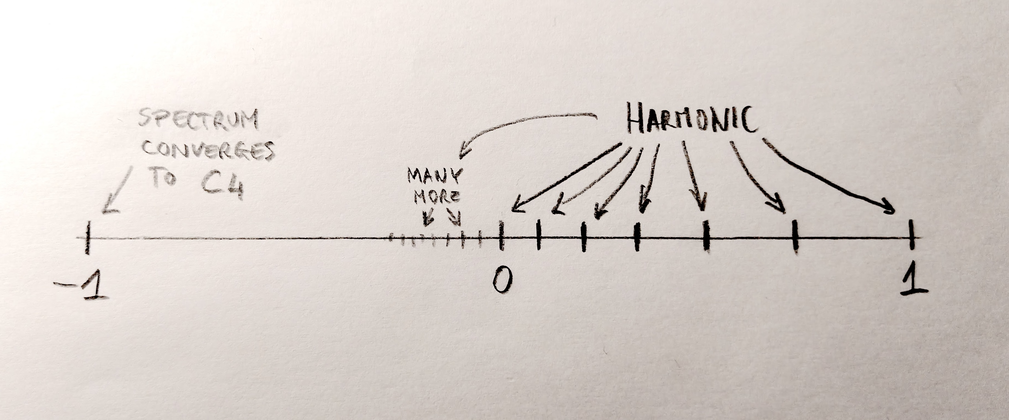 SPECTRUM
CONVERGES
TO C4
HARMONIC
MANY
MORE
-1
0
1